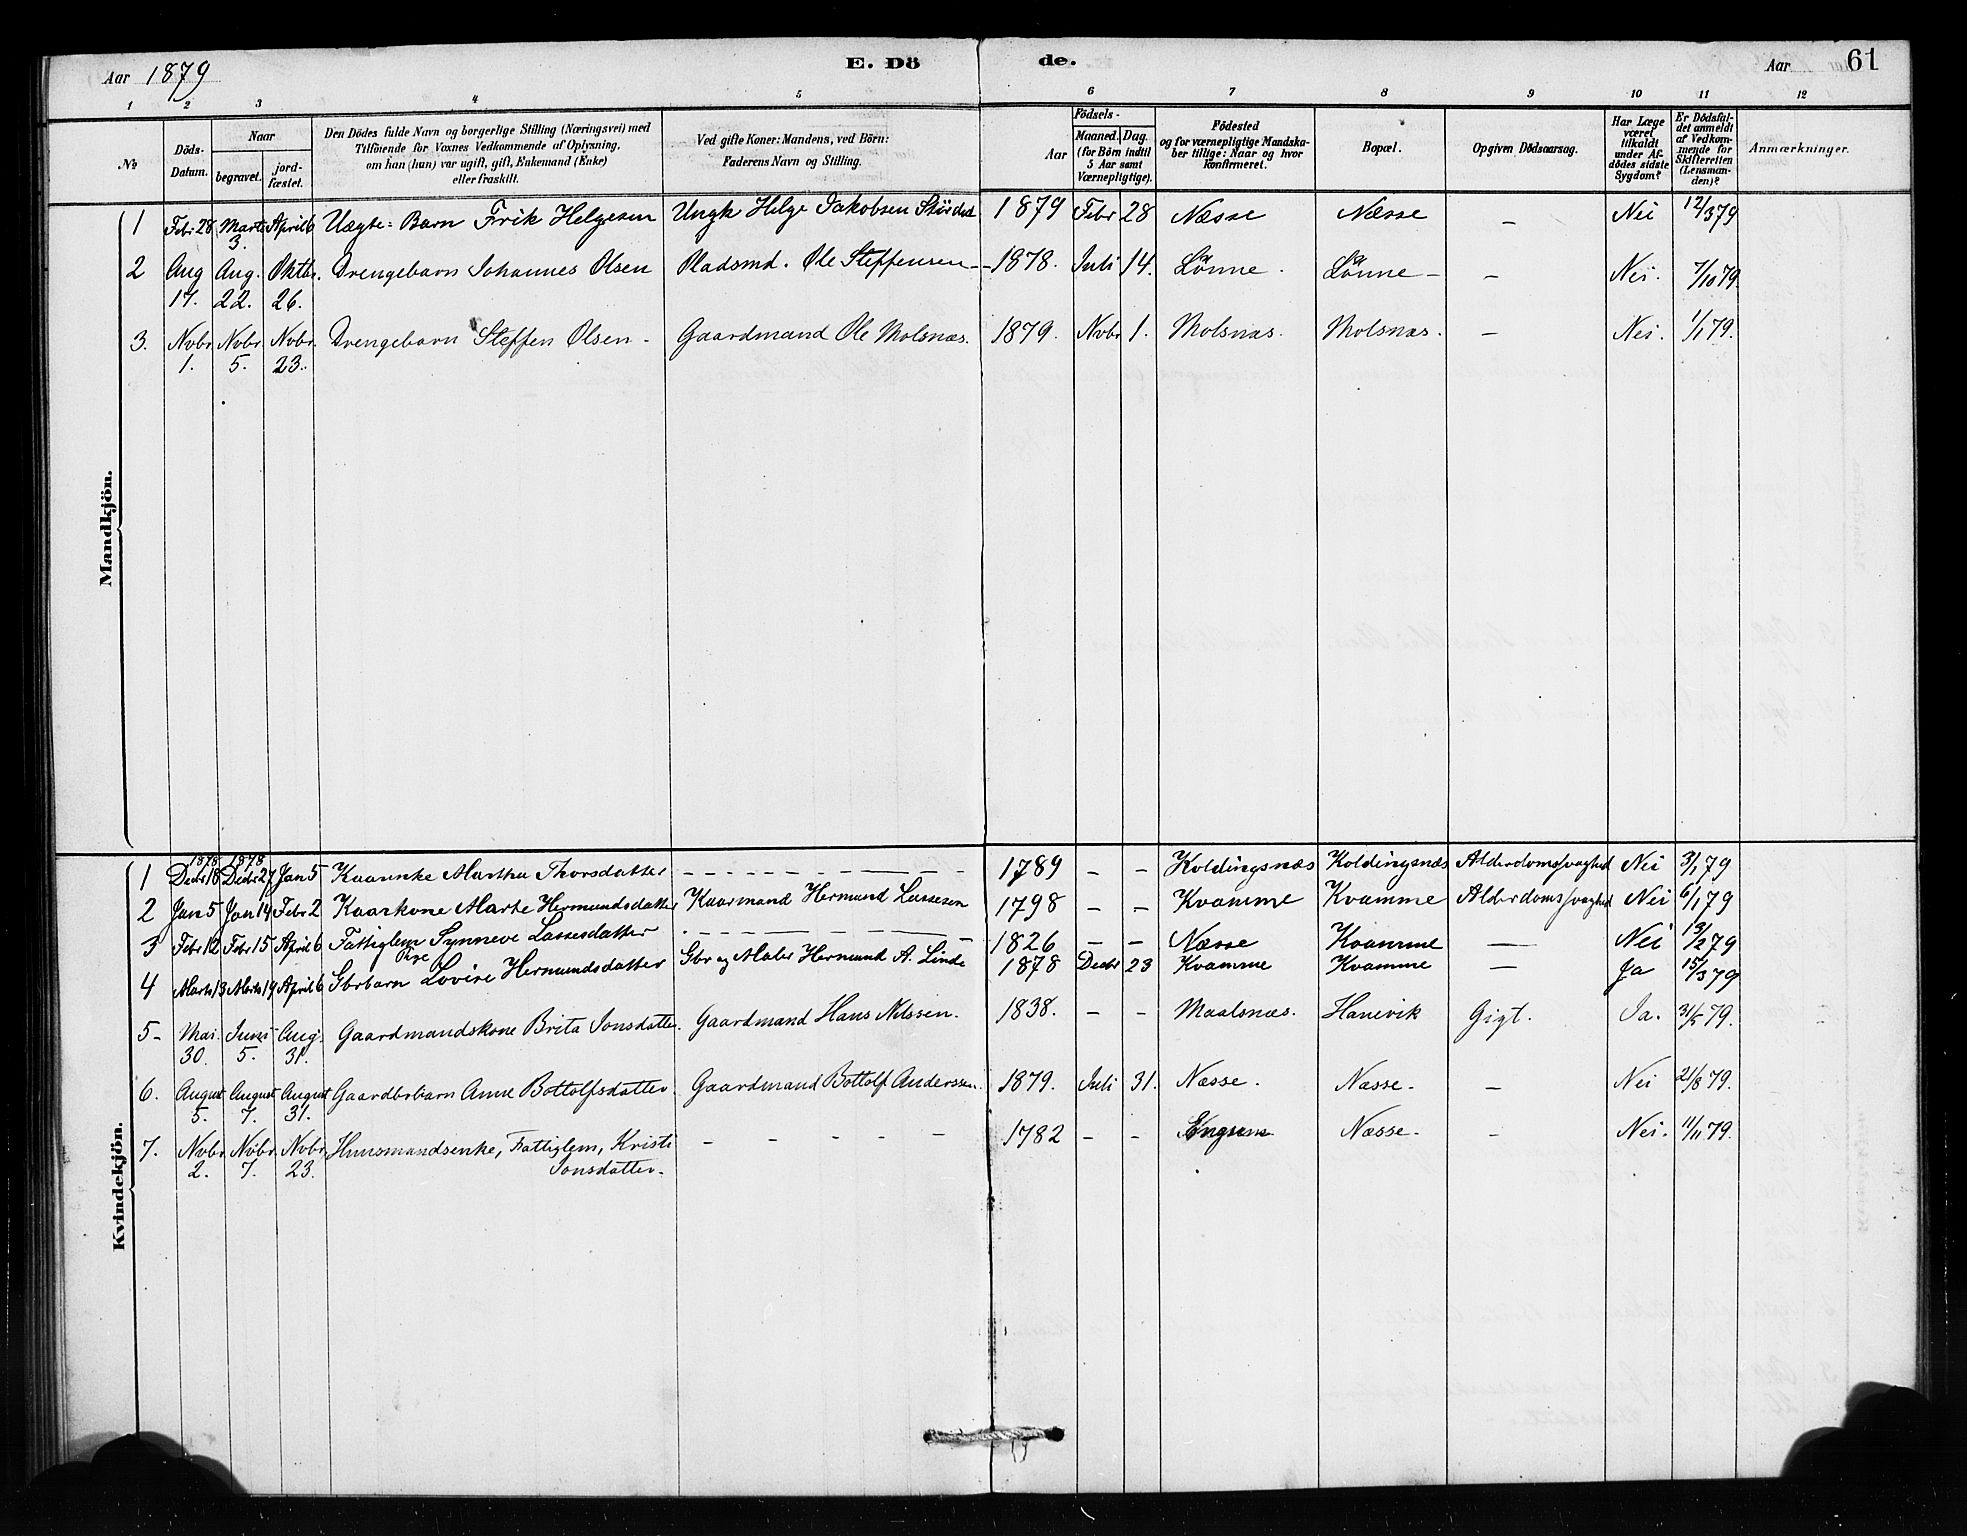 Aar 1879 E. Dö de. Aar 61
1 2 3 4 5 6 7 8 9 10 11 12
№ Döds-Datum. Naar begravet. jord-fæstet. Den Dödes fulde Navn og borgerlige Stilling (Næringsvei) med Tilföiende for Voxnes Vedkommende af Oplysning, om han (hun) var ugift, gift, Enkemand (Enke) eller fraskilt. Ved gifte Koner: Mandens, ved Börn: Faderens Navn og Stilling. Födsels- Aar Maaned. Dag. (for Börn indtil 5 Aar samt Værnepligtige). Födested og for værnepligtige Mandskaber tillige: Naar og hvor konfirmeret. Bopæl. Opgiven Dödsaarsag. Har Læge været tilkaldt under Afdödes sidste Sygdom? Er Dödsfaldet anmeldt af Vedkommende for Skifteretten (Lensmanden)? Anmærkninger.
Mandkjön.
1 Febr 28 Marts 3. April 6 Uægte: Barn Erik Helgesen Ungk Helge Jakobsen 1879 Febr 28 Næsse Næsse – Nei 12/3 79
2 Aug 17. Aug. 22. Oktbr. 26. Drengebarn Johannes Olsen Pladsmd. Ole Steffensen – 1878. Juli 14. Lønne. Lønne – – Nei. 7/10 79.
3. Novbr. 1. Novbr. 5. Novbr. 23. Drengebarn Steffen Olsen – Gaardmand Ole Molsnæs. 1879. Novbr 1. Molsnæs. Molsnæs. – Nei. 1/1 79.
Kvindekjön.
1 1878 Decbr 18 1878 Decbr 27 Jan 5 Kaarenke Martha Thorsdatter – – – 1789 – – Koldingsnæs Koldingsnæs Alderdomssvaghed Nei 3/1 79
2 Jan 5 Jan 14 Febr 2 Kaarkone Marte Hermundsdatter Kaarmand Hermund Lassesen 1798 – – Kvamme Kvamme Alderdomssvaghed Nei 6/1 79
3 Febr 12 Febr 15 April 6 Fattiglem Synneve Lassesdatter – – – 1826 – – Næsse Kvamme – Nei 13/2 79
4 Marts 13 Marts 19 April 6 Gbrbarn Lovise Hermundsdatter Gbr og Maler Hermund A. Linde 1878 Decbr 23 Kvamme Kvamme – Ja 15/3 79
5 – Mai. 30. Juni 5. Aug. 31. Gaardmandskone Brita Jonsdatter. Gaardmand Hans Nilssen. 1838. – – Maalsnæs. Hanevik Gigt. Ja. 31/5 79.
6. August 5. August 7. August 31. Gaardbrbarn Anne Bottolfsdatter Gaardmand Bottolf Anderssen. 1879. Juli 31. Næsse. Næsse. – Nei 21/8 79.
7. Novbr 2. Novbr 7. Novbr 23. Huusmandsenke, Fattiglem, Kristi
Jonsdatter. – – – – – 1782 – – Næsse. – Nei. 11/11 79.